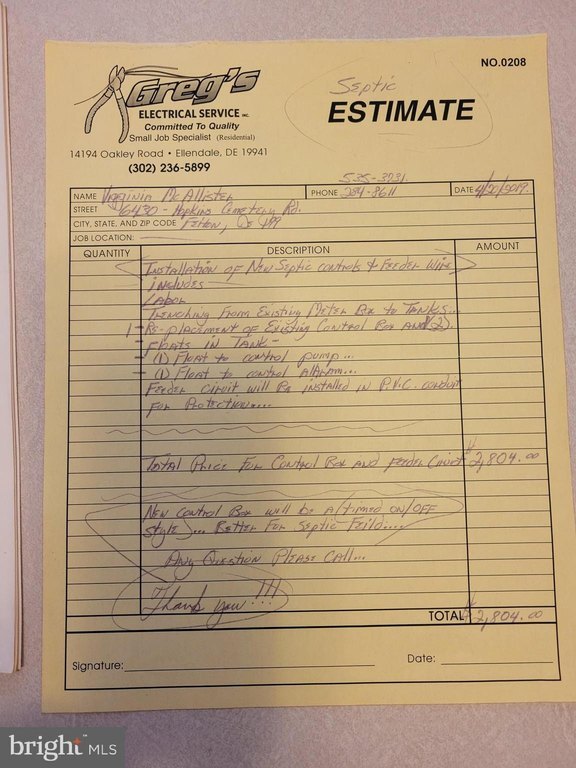 Greg's
ELECTRICAL SERVICE INC.
Committed To Quality
Small Job Specialist (Residential)
14194 Oakley Road • Ellendale, DE 19941
(302) 236-5899
NO.0208
Septic
ESTIMATE
535-3231
NAME Virginia McAllister PHONE 284-8611 DATE 4/20/2019
STREET 6430 - Hopkins Cemetery Rd.
CITY, STATE, AND ZIP CODE Felton, De
JOB LOCATION:
QUANTITY DESCRIPTION AMOUNT
Installation of New Septic controls & Feeder Wire
includes
Labor
Trenching From Existing Meter Box to Tanks...
1 - Re-placement of Existing Control Box and (2)
Floats in Tank -
(1) Float to control pump...
(1) Float to control alaram...
Feeder Ciruit will Be installed in P.V.C. conduit
For Protection....
Total Price For Control Box and Feeder Ciruit $2,804.00
New Control Box will be a/timed on/off
style)... Better For Septic Feild....
Any Question Please Call...
Thank you!!!
TOTAL $2,804.00
Signature: Date:
bright MLS